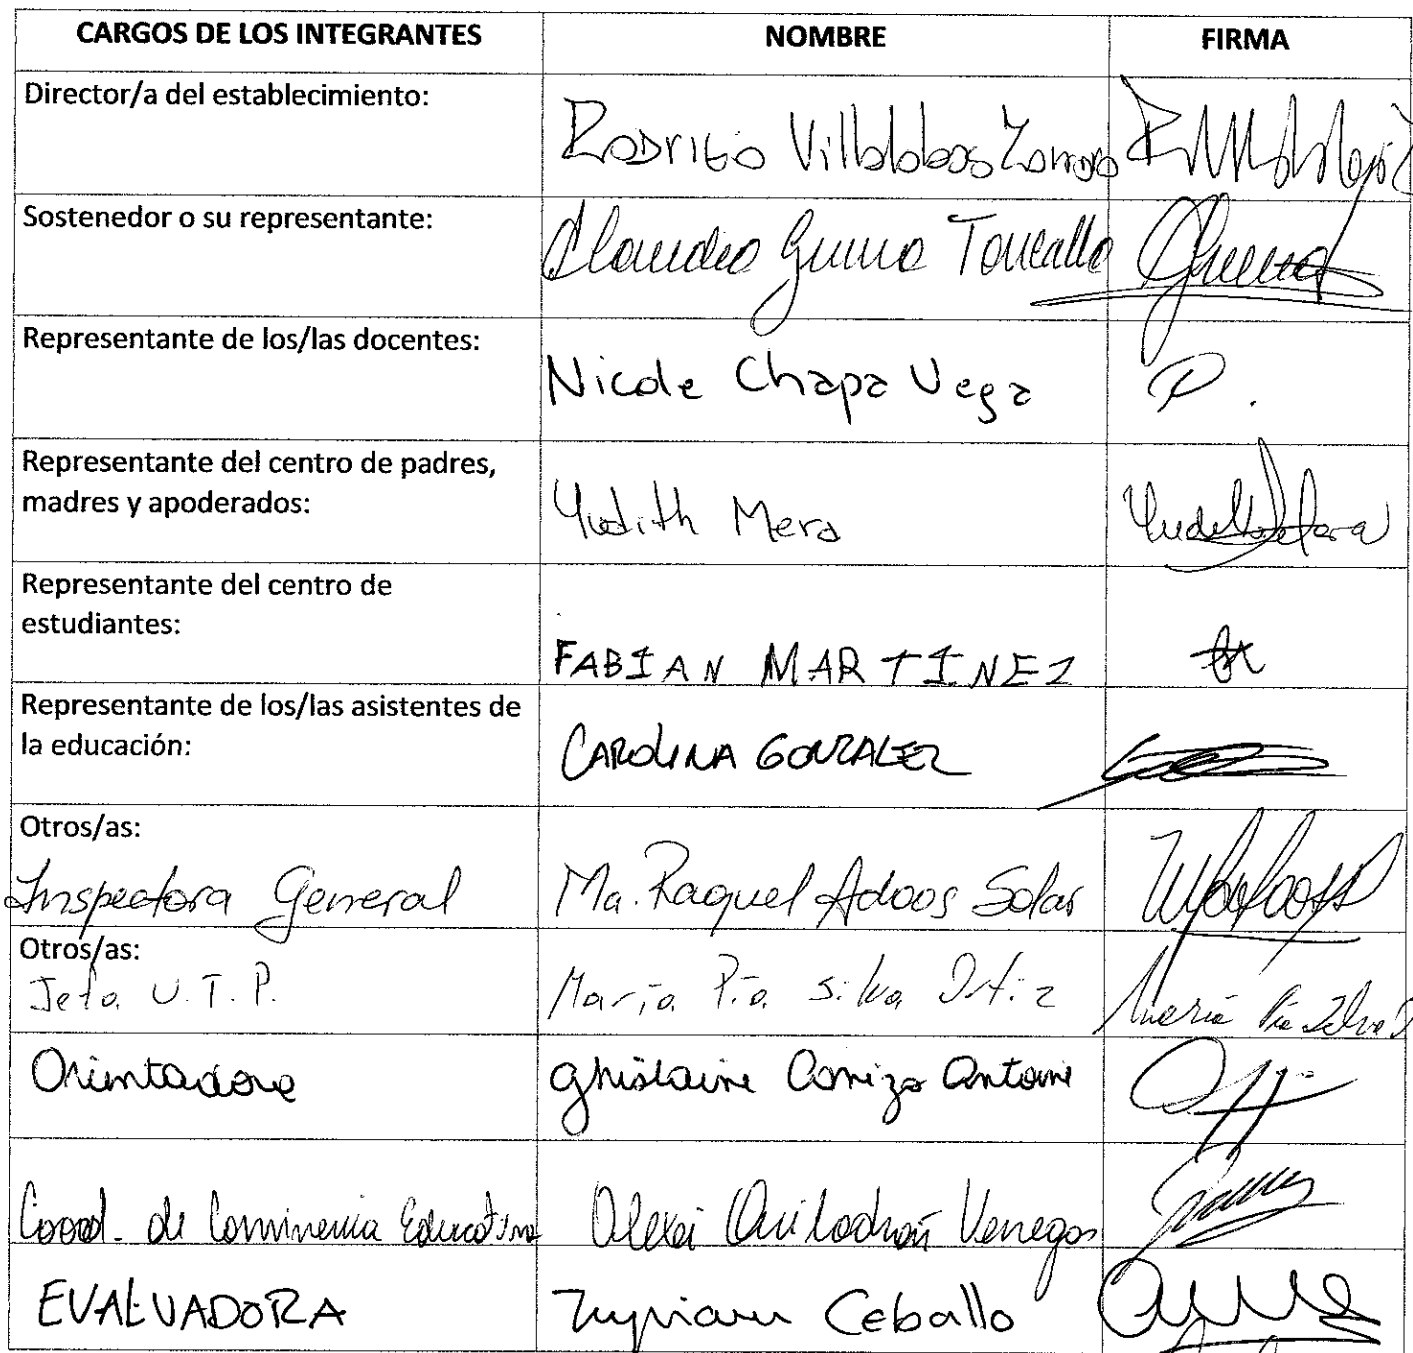 CARGOS DE LOS INTEGRANTES NOMBRE FIRMA
Director/a del establecimiento:
Rodrigo Villalobos
Sostenedor o su representante:
Claudio
Representante de los/las docentes:
Nicole Chapa Vega
Representante del centro de padres,
madres y apoderados:
Yudith Mera
Representante del centro de
estudiantes:
FABIAN MARTINEZ
Representante de los/las asistentes de
la educación:
CAROLINA GONZALEZ
Otros/as:
Inspectora General Ma. Raquel Adaos Solar
Otros/as:
Jefa U.T.P. María Pía Silva Ortiz María Pía Silva O
Orientadora Ghislaine Antoine
Coord. de Convivencia Educativa Alexei Quilodrán Venegas
EVALUADORA Myriam Ceballo